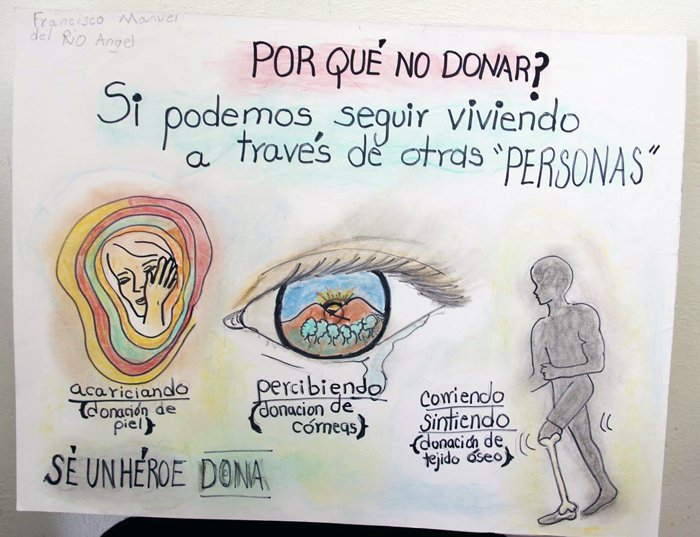 Francisco Manuel
del Rio Angel
POR QUÉ NO DONAR?
Si podemos seguir viviendo
a través de otras "PERSONAS"
acariciando
(donación de
piel)
percibiendo
(donacion de
córneas)
corriendo
sintiendo
(donación de
tejido óseo)
SÉ UN HÉROE DONA